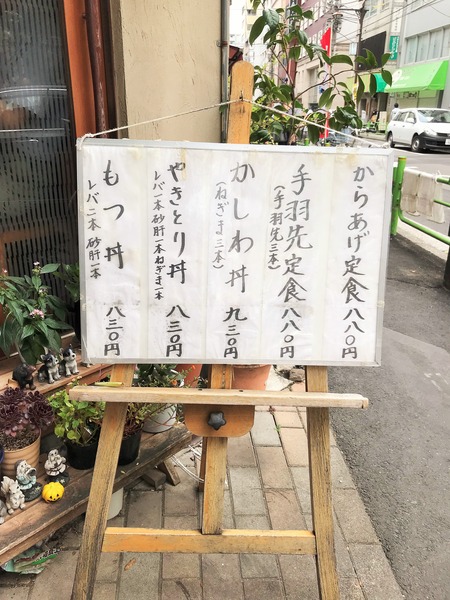 からあげ定食 八八〇円
手羽先定食 八八〇円
(手羽先三本)
かしわ丼 九三〇円
(ねぎま三本)
やきとり丼 八三〇円
レバ一本砂肝一本ねぎま一本
もつ丼 八三〇円
レバ二本 砂肝一本